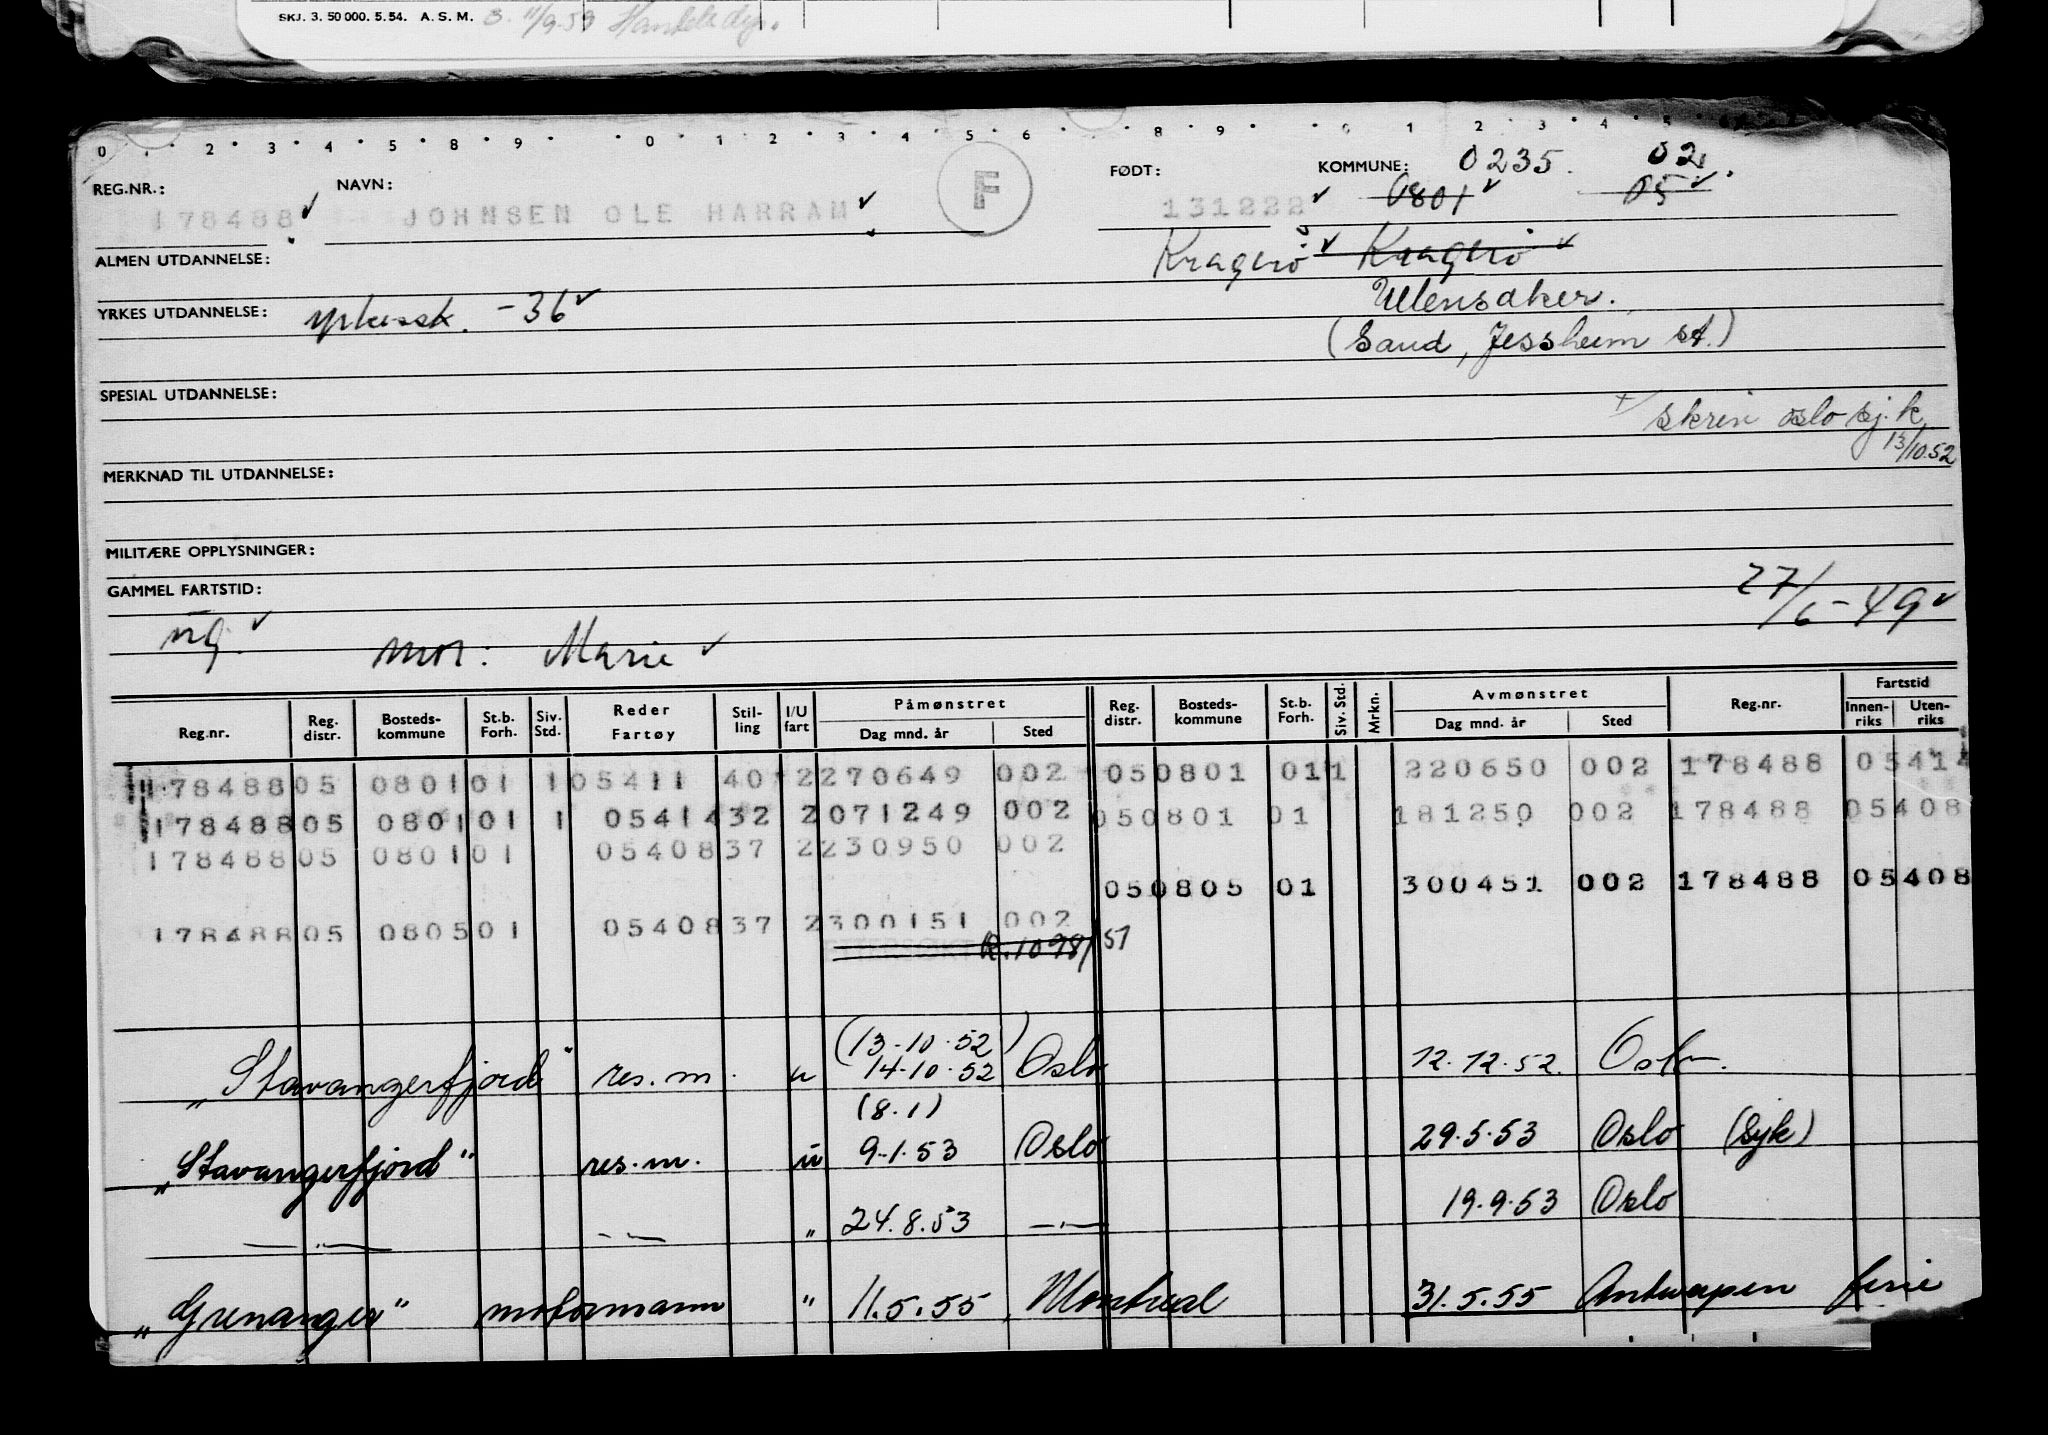 SKJ. 3. 50 000. 5. 54. A. S. M. 3. 11/9.59 Handelsdep.
0 1 2 3 4 5 8 9 0 1 2 3 4 5 6 8 9 0 1 2 3 4 5
REG.NR.: NAVN: F FØDT: KOMMUNE: 0235. 02.
178488 JOHNSEN OLE HARRAM 131222 0801 05
ALMEN UTDANNELSE: Kragerö Kragerö
YRKES UTDANNELSE: yrkessk. -36 Ullensaker.
(Sand, Jessheim st.)
SPESIAL UTDANNELSE:
skriv oslo sj.k
13/10.52
MERKNAD TIL UTDANNELSE:
MILITÆRE OPPLYSNINGER:
GAMMEL FARTSTID: 27/6-49
ug. mor: Marie
Reg.nr. Reg. distr. Bosteds- kommune St.b. Forh. Siv. Std. Reder Fartøy Stil- ling I/U fart Påmønstret Dag mnd. år Sted Reg. distr. Bosteds- kommune St.b. Forh. Siv. Std. Mrkn. Avmønstret Dag mnd. år Sted Reg.nr. Fartstid Innen- riks Uten- riks
178488 05 0801 01 1 05411 40 2 270649 002 05 0801 01 1 220650 002 178488 05414
178488 05 0801 01 1 05414 32 2 071249 002 05 0801 01 181250 002 178488 05408
178488 05 0801 01 05408 37 2 230950 002
05 0805 01 300451 002 178488 05408
178488 05 0805 01 05408 37 2 300151 002
R.1098/51
(13-10-52)
"Stavangerfjord" res.m. u 14-10-52 Oslo 12.12.52. Oslo.
(8.1)
"Stavangerfjord" res.m. u 9.1.53 Oslo 29.5.53 Oslo (syk)
—"— —"— " 24.8.53 —"— 19.9.53 Oslo
"Grenanger" motormann " 11.5.55 Montreal 31.5.55 Antwerpen ferie